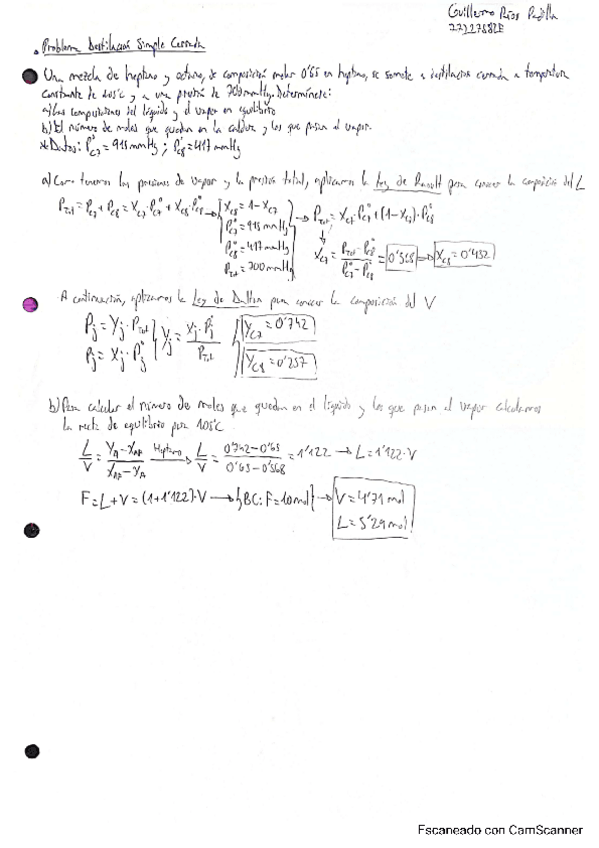 Guillermo Ríos Padilla
• Problema destilación Simple Cerrada
Una mezcla de heptano y octano, de composición molar 0'65 en heptano, se somete a destilación cerrada a temperatura
constante de 105ºC y a una presión de 700mmHg. Determínese:
a) Las composiciones del líquido y el vapor en equilibrio
b) El número de moles que quedan en la caldera y los que pasan al vapor.
* Datos: P°C7 = 915 mmHg ; P°C8 = 417 mmHg
a) Como tenemos las presiones de vapor y la presión total, aplicamos la Ley de Raoult para conocer la composición del L
PTot = PC7 + PC8 = XC7·P°C7 + XC8·P°C8 → XC8 = 1 - XC7 → PTot = XC7·P°C7 + (1-XC7)·P°C8
P°C7 = 915 mmHg
P°C8 = 417 mmHg
PTot = 700 mmHg
XC7 = (PTot - P°C8)/(P°C7 - P°C8) = 0'568 → XC8 = 0'432
A continuación, aplicamos la Ley de Dalton para conocer la composición del V
Pj = Yj·PTot
Pj = Xj·P°j
Yj = Xj·P°j/PTot
YC7 = 0'742
YC8 = 0'257
b) Para calcular el número de moles que quedan en el líquido y los que pasan al vapor calculamos
la recta de equilibrio para 105ºC.
L/V = (YA - XAF)/(XAF - XA) Heptano → L/V = (0'742 - 0'65)/(0'65 - 0'568) = 1'122 → L = 1'122·V
F = L + V = (1 + 1'122)·V → {BC: F = 10mol} → V = 4'71 mol
L = 5'29 mol
Escaneado con CamScanner